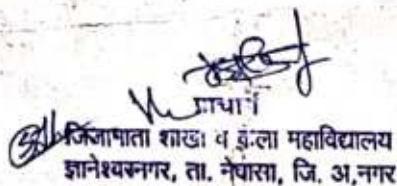 प्राचार्य
जिजामाता शास्त्र व कला महाविद्यालय
ज्ञानेश्वरनगर, ता. नेवासा, जि. अ,नगर